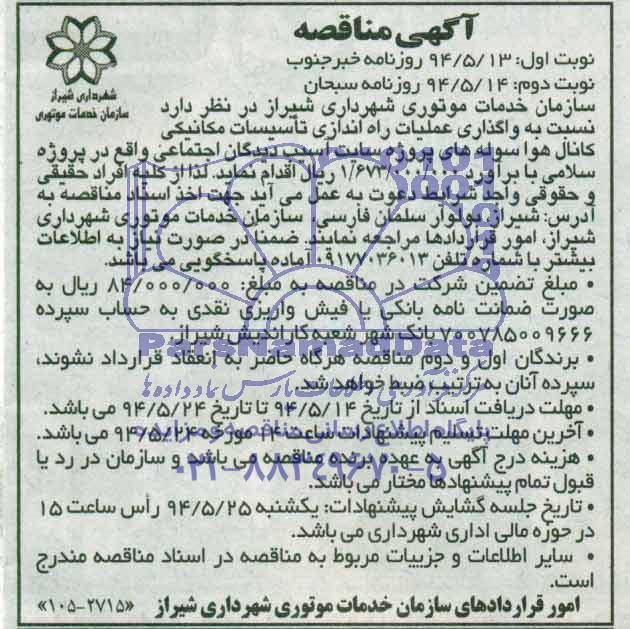 آگهی مناقصه
شهرداری شیراز
سازمان خدمات موتوری
نوبت اول: ۹۴/۵/۱۳ روزنامه خبرجنوب
نوبت دوم: ۹۴/۵/۱۴ روزنامه سبحان
سازمان خدمات موتوری شهرداری شیراز در نظر دارد
نسبت به واگذاری عملیات راه اندازی تأسیسات مکانیکی
کانال هوا سوله های پروژه سایت آسیب دیدگان اجتماعی واقع در پروژه
سلامی با برآورد ۱/۶۷۳/۰۰۰/۰۰۰ ریال اقدام نماید. لذا از کلیه افراد حقیقی
و حقوقی واجد شرایط دعوت به عمل می آید جهت اخذ اسناد مناقصه به
آدرس: شیراز، بولوار سلمان فارسی، سازمان خدمات موتوری شهرداری
شیراز، امور قراردادها مراجعه نمایند. ضمنا در صورت نیاز به اطلاعات
بیشتر با شماره تلفن ۰۹۱۷۷۰۳۶۰۱۳ آماده پاسخگویی می باشد.
• مبلغ تضمین شرکت در مناقصه به مبلغ: ۸۴/۰۰۰/۰۰۰ ریال به
صورت ضمانت نامه بانکی یا فیش واریزی نقدی به حساب سپرده
۷۰۰۷۸۵۰۰۹۶۶۶ بانک شهر شعبه کاراندیش شیراز.
• برندگان اول و دوم مناقصه هرگاه حاضر به انعقاد قرارداد نشوند،
سپرده آنان به ترتیب ضبط خواهد شد.
• مهلت دریافت اسناد از تاریخ ۹۴/۵/۱۴ تا تاریخ ۹۴/۵/۲۴ می باشد.
• آخرین مهلت تسلیم پیشنهادات ساعت ۱۴ مورخه ۹۴/۵/۲۴ می باشد.
• هزینه درج آگهی به عهده برنده مناقصه می باشد و سازمان در رد یا
قبول تمام پیشنهادها مختار می باشد.
• تاریخ جلسه گشایش پیشنهادات: یکشنبه ۹۴/۵/۲۵ رأس ساعت ۱۵
در حوزه مالی اداری شهرداری می باشد.
• سایر اطلاعات و جزییات مربوط به مناقصه در اسناد مناقصه مندرج
است.
امور قراردادهای سازمان خدمات موتوری شهرداری شیراز «۱۰۵-۲۷۱۵»
ParsNamadData
مرکز فرآوری اطلاعات پارس نماد داده ها
پایگاه اطلاع رسانی مناقصه و مزایده
۰۲۱-۸۸۳۴۹۶۷۰-۵